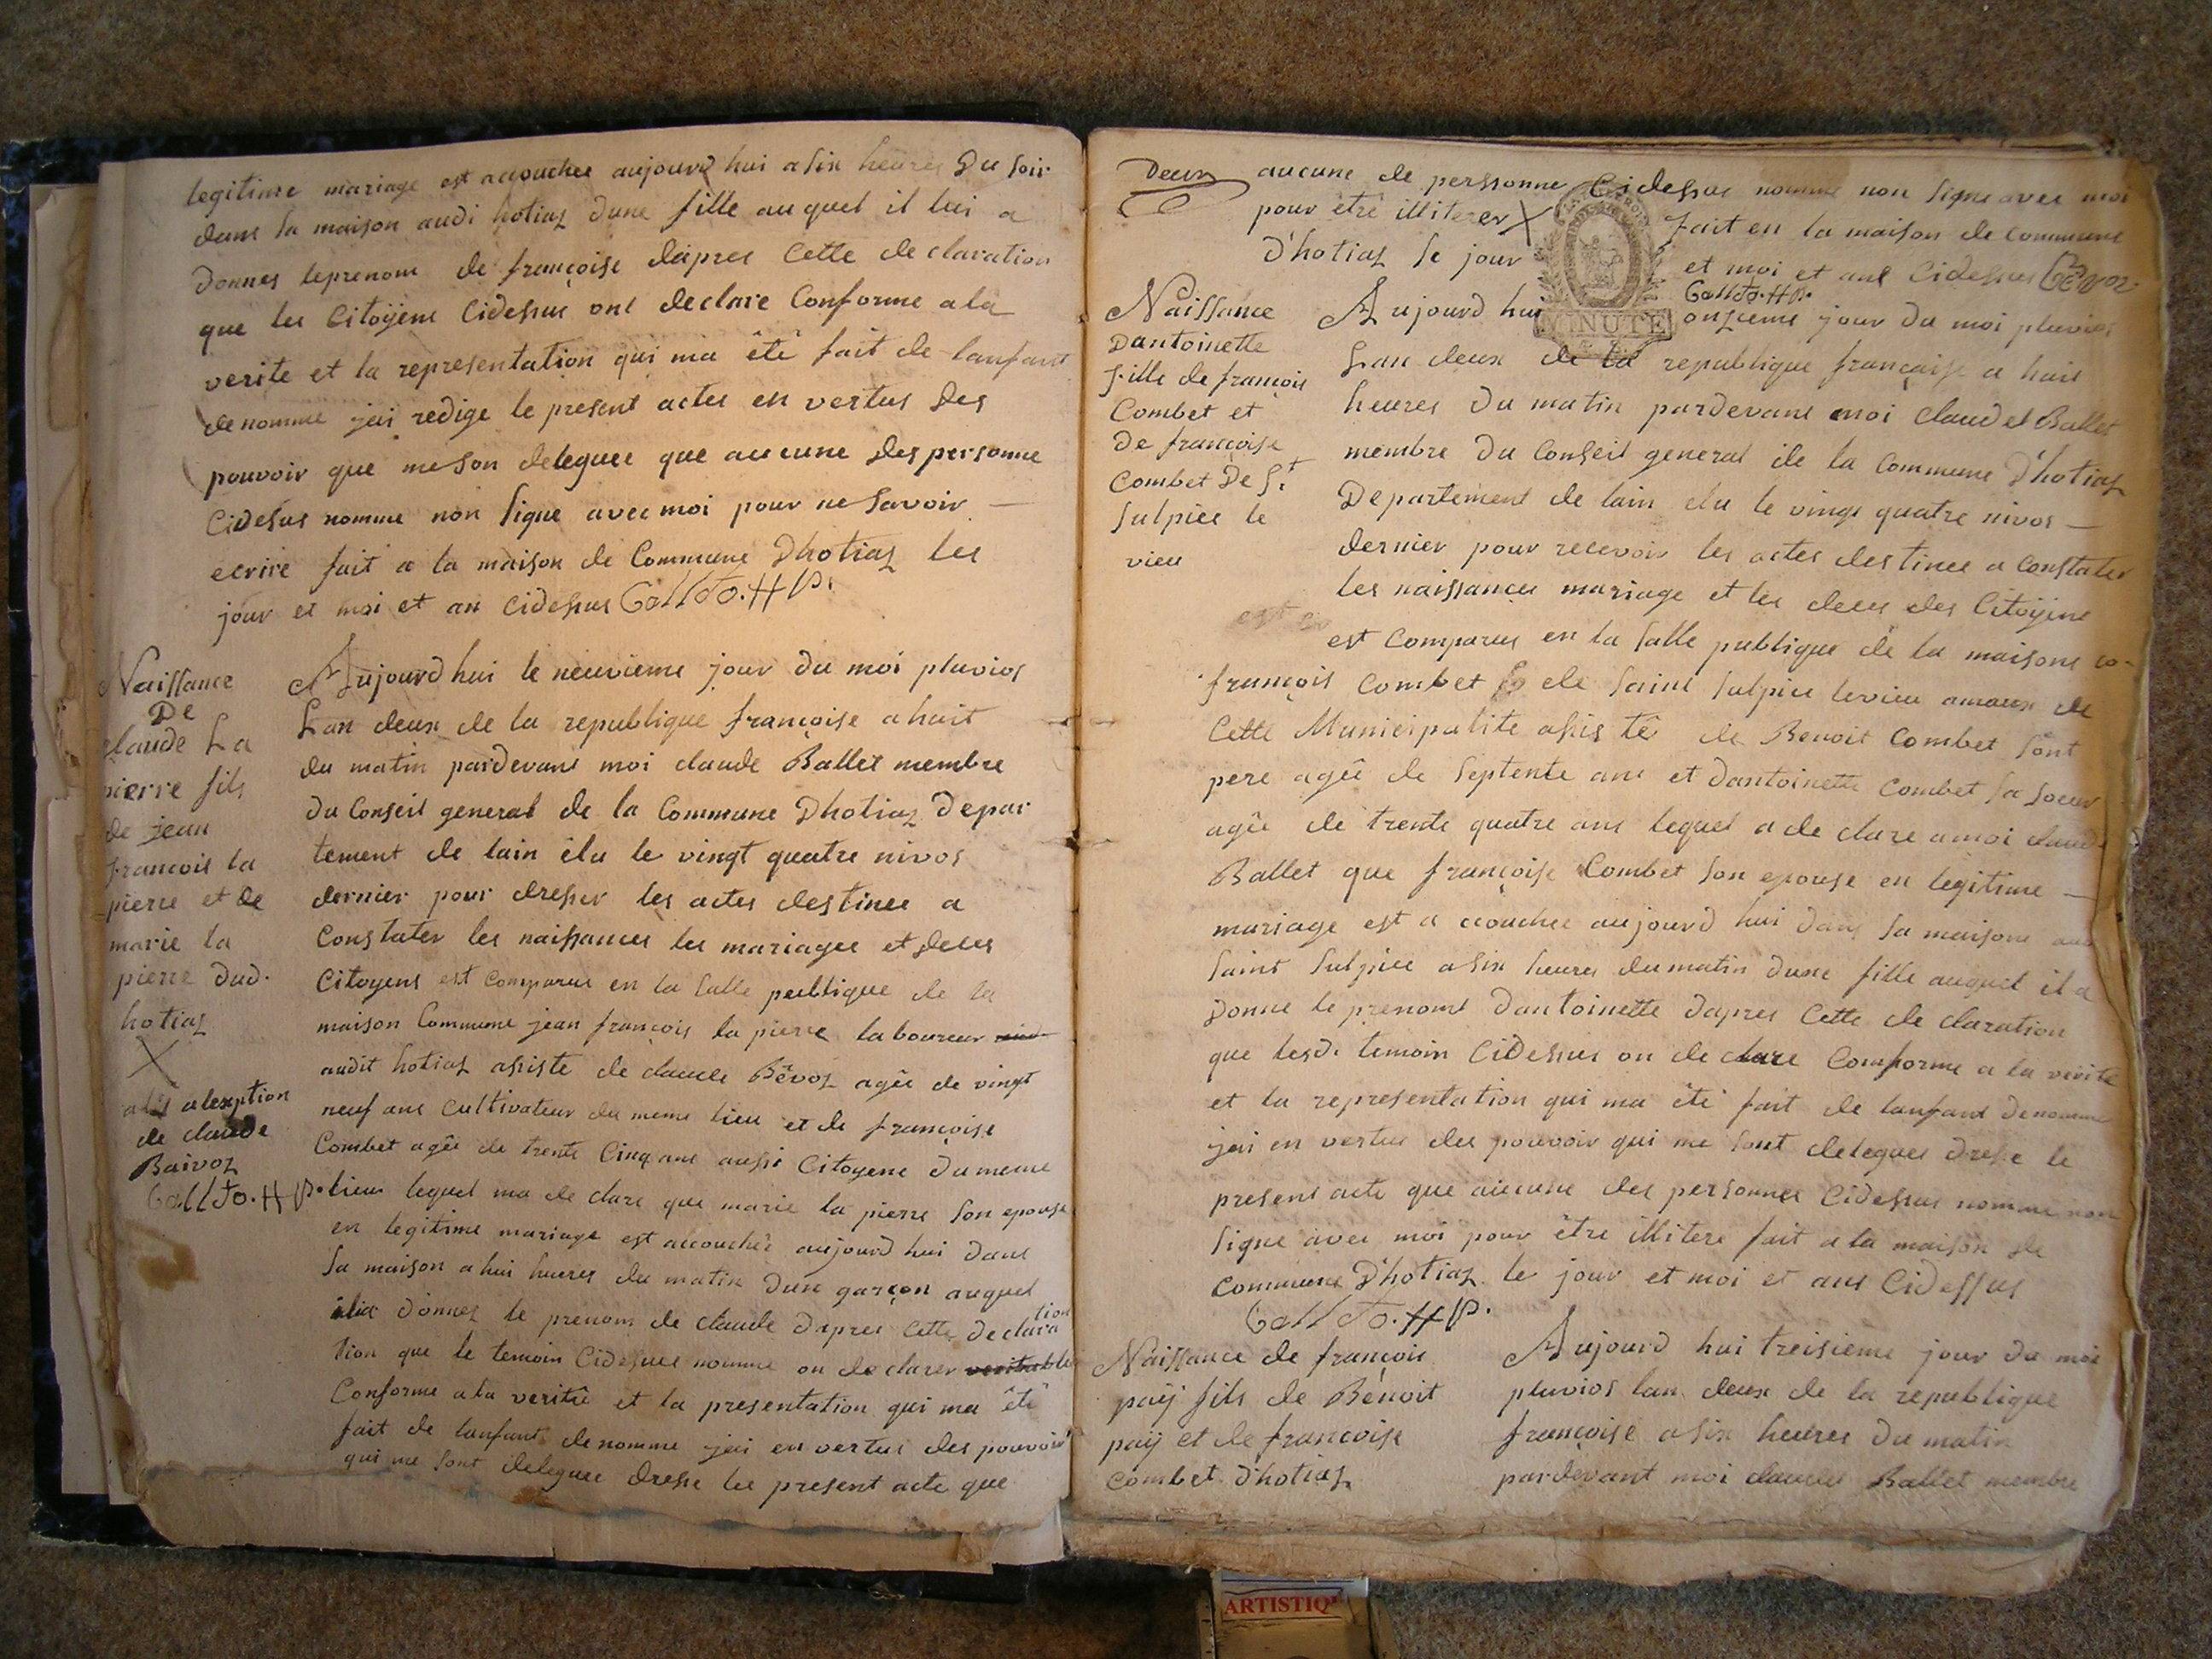 legitime mariage est accouchee aujourd hui a six heures Du soir
dans sa maison audi hotiaz dune fille auquel il lui a
donnes leprenom de françoise dâpres Cette declaration
que les Citoÿens Cidessus ont declare Conforme a la
verite et la representation qui ma êtê fait de lanfant
denomme jai redige le present actes en vertus des
pouvoir que meson deleguee que aucune des personne
Cidesus nomme non signe avec moi pour ne savoir
ecrire fait a la maison de Commune Dhotiaz les
jour et moi et an cidessus
Naissance
De
claude La
pierre fils
de jean
francois la
pierre et de
marie la
pierre dud.
hotiaz
X
a lexption
de claude
Baivoz
Aujourd hui le neuvieme jour du moi pluvios
Lan deux de la republique françoise a huit
du matin pardevant moi claude Ballet membre
du Conseil general de la Commune Dhotiaz Depar
tement de lain êlu le vingt quatre nivos
dernier pour dresser les actes destinee a
Constater les naissances les mariages et deces
Citoyens est comparus en la salle publique de la
maison Commune jean françois la pierre laboureur
audit hotiaz assiste de claude Bêvoz agêe de vingt
neuf ans Cultivateur du meme lieu et de françoise
Combet agêe de trente Cinq ans aussi Citoyene du meme
lieu lequel ma declare que marie la pierre son epouse
en legitime mariage est accouchêe aujourd hui dans
sa maison a hui hueres du matin dun garçon auquel
ilia donnez le prenom de claude dapres cette declara
tion
tion que le temoin Cidesues nomme on declarer veritable
Conforme a la veritê et la presentation qui ma êtê
fait de lanfant denomme jai en vertus des pouvoir
qui me sont deleguee dresse les present acte que
Deux
aucune de perssonne Cidessus nomme non signe avec moi
pour etre illiterer X fait en la maison de commune
d'hotiaz le jour et moi et ans Cidessus Bêvoz
MINUTE
Naissance
Dantoinette
fille de françois
Combet et
De françoise
Combet De St
sulpice le
vieu
Aujourd hui onzieme jour du moi pluvios
Lan deux de la republique françaisse a huit
heures du matin pardevant moi claudet Ballet
membre du Conseil general de la Commune D'hotiaz
Departement de lain elu le vingt quatre nivos
dernier pour recevoir les actes destinee a Constater
les naissances mariage et les deces des Citoÿens
est comparus en la salle publique de la maisons co
françois Combet de saint sulpice levieu amaux de
Cette Municipalite assistê de Benoit Combet sont
pere agêe de septente ans et dantoinette Combet sa soeur
agêe de trente quatre ans lequel a declare a moi claud
Ballet que françoise Combet son epouse en legitime
mariage est accouchee aujourd hui dans sa maisons
saint sulpice a six heures dumatin dune fille auquel il a
donne le prenoms dantoinette dapres Cette declaration
que lesd. temoin Cidessus on declare Comforme a la verite
et la representation qui ma êtê fait de lanfant denomme
jai en vertus des pouvoir qui me sont deleguee dresse le
present acte que aucune des personnes Cidessus nomme non
signe avec moi pour être illitere fait a la maison de
commune D'hotiaz le jour et moi et ans Cidessus
Naissance de françois
paÿ fils de Benoit
paÿ et de françoise
combet d'hotiaz
Aujourd hui treisieme jour du moi
pluvios lan deux de la republique
françoise a six heures du matin
pardevant moi claude Ballet membre
ARTISTIQ